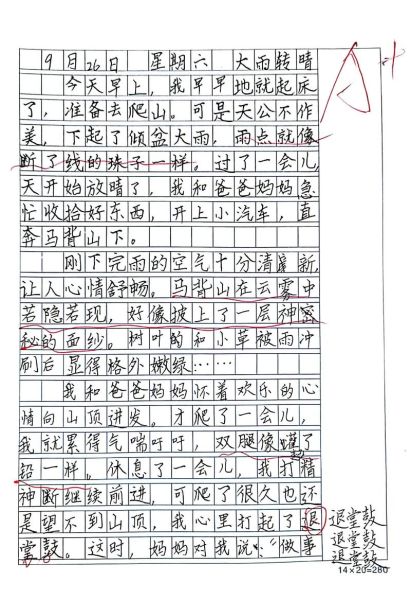 9月26日 星期六 大雨转晴
今天早上，我早早地就起床
了，准备去爬山。可是天公不作
美，下起了倾盆大雨，雨点就像
断了线的珠子一样。过了一会儿，
天开始放晴了，我和爸爸妈妈急
忙收拾好东西，开上小汽车，直
奔马背山下。
刚下完雨的空气十分清新，
让人心情舒畅。马背山在云雾中
若隐若现，好像披上了一层神密
秘的面纱。树叶的和小草被雨冲
刷后显得格外嫩绿……
我和爸爸妈妈怀着欢乐的心
情向山顶进发。才爬了一会儿，
我就累得气喘吁吁，双腿像灌了
铅一样。休息了一会儿，我打起精
神断继续前进，可爬了很久也还
是望不到山顶，我心里打起了退
堂鼓。这时，妈妈对我说：“做事
退堂鼓
退堂鼓
退堂鼓
14×20=280